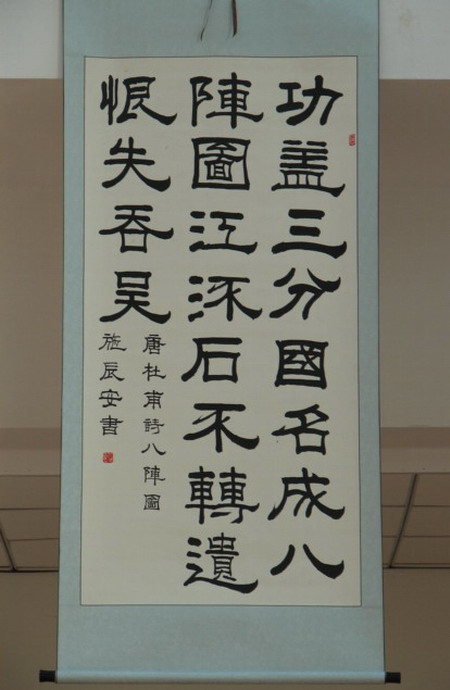 功盖三分國名成八
陣圖江流石不轉遺
恨失吞吴
唐杜甫詩八陣圖
施辰安書